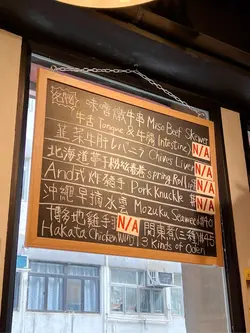 味噌燉牛串 Miso Beef Skewer
(牛舌 Tongue & 牛腸 Intestine) N/A
韮菜牛肝レバニラ Chives Liver N/A
北海道帶子粉絲春卷 Spring Roll N/A
And式炸豬手 Pork Knuckle N/A
沖繩早摘水雲 Mozuku Seaweed $40
博多地雞手羽 N/A 関東煮(三種) $45
Hakata Chicken Wing 3 Kinds of Oden